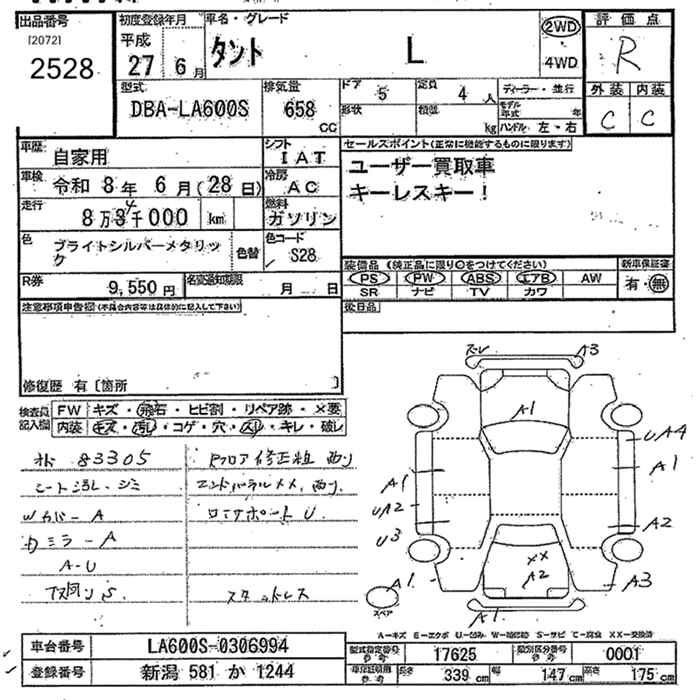 出品番号
[2072]
2528
初度登録年月
平成
27 6 月
車名・グレード
タント L
2WD
4WD
評価点
R
外装 内装
C C
型式
DBA-LA600S
排気量
658
CC
ドア
5
形状
定員
4 人
積載
kg
ディーラー・並行
モデル年式 年
ハンドル 左・右
車歴
自家用
シフト
IAT
車検
令和 8 年 6 月(28 日)
冷房
AC
走行
8 万 3 4 千000 km
燃料
ガソリン
色
ブライトシルバーメタリック
色替
色コード
S28
R券
9,550 円
名変通知期限
月 日
セールスポイント(正常に機能するものに限ります)
ユーザー買取車
キーレスキー!
装備品 (純正品に限り〇をつけてください)
PS PW ABS エアB AW
SR ナビ TV カワ
新車保証書
有・無
後日品
注意事項申告欄(不具合内容等は具体的に記入して下さい)
修復歴 有〔箇所 〕
検査員記入欄
FW キズ・飛石・ヒビ割・リペア跡・×要
内装 キズ・汚れ・コゲ・穴・スレ・キレ・破レ
83305
シート汚レ・シミ
Wカバー A
A-U
スタッドレス
スレ A3
A1
UA4
A1
A1
UA2
U3
A2
XX
A2
A3
A1
スペア
A1
A-キズ E-エクボ U-凹み W-補修跡 S-サビ C-腐食 XX-交換済
車台番号 LA600S-0306994
登録番号 新潟 581 か 1244
型式指定番号 参考 17625
類別区分番号 参考 0001
車検証明用 参考 長さ 339 cm 幅 147 cm 高さ 175 cm